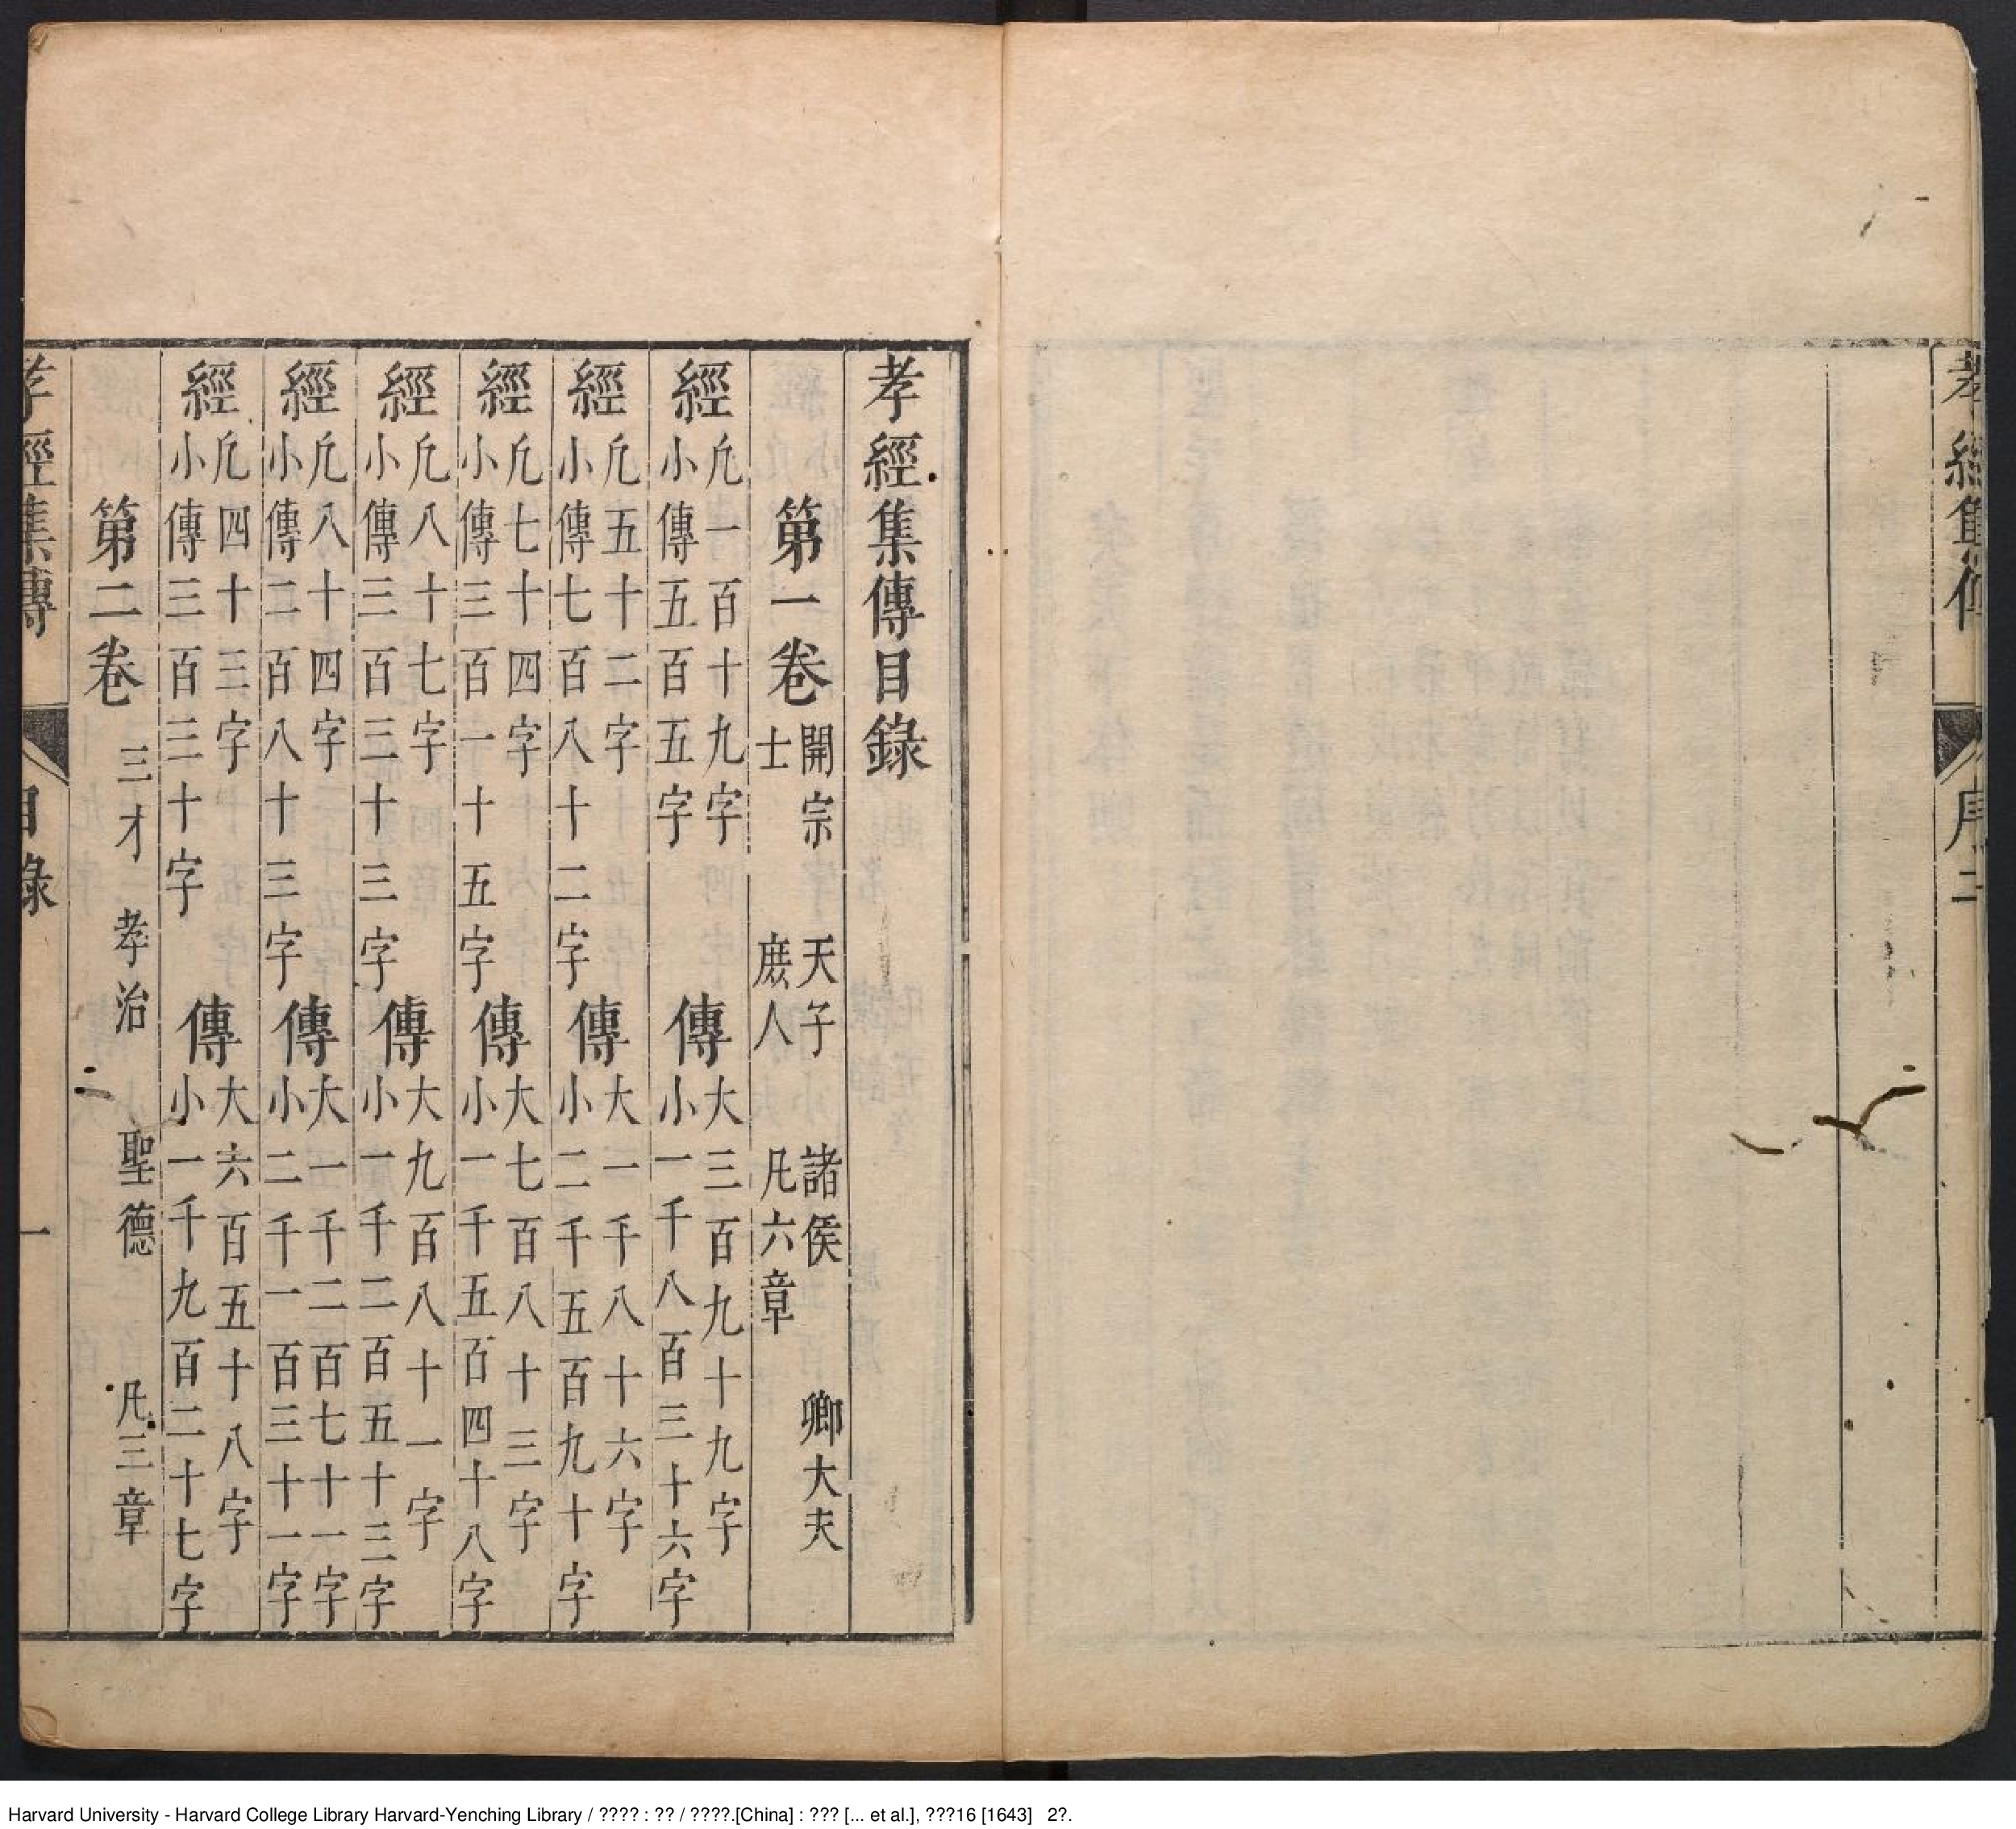 孝經集傳目錄
第一卷 開宗 天子 諸侯 卿大夫
士 庶人 凡六章
經 凡一百十九字 小傳五百五字 傳 大三百九十九字 小一千八百三十六字
經 凡五十二字 小傳七百八十二字 傳 大一千八十六字 小二千五百九十字
經 凡七十四字 小傳三百一十五字 傳 大七百八十三字 小一千五百四十八字
經 凡八十七字 小傳三百三十三字 傳 大九百八十一字 小一千二百五十三字
經 凡八十四字 小傳二百八十三字 傳 大一千二百七十一字 小二千一百三十一字
經 凡四十三字 小傳三百三十字 傳 大六百五十八字 小一千九百二十七字
第二卷 三才 孝治 聖德 凡三章
孝經集傳 目錄 一
孝經集傳 序 二
Harvard University - Harvard College Library Harvard-Yenching Library / ???? : ?? / ????.[China] : ??? [... et al.], ???16 [1643] 2?.